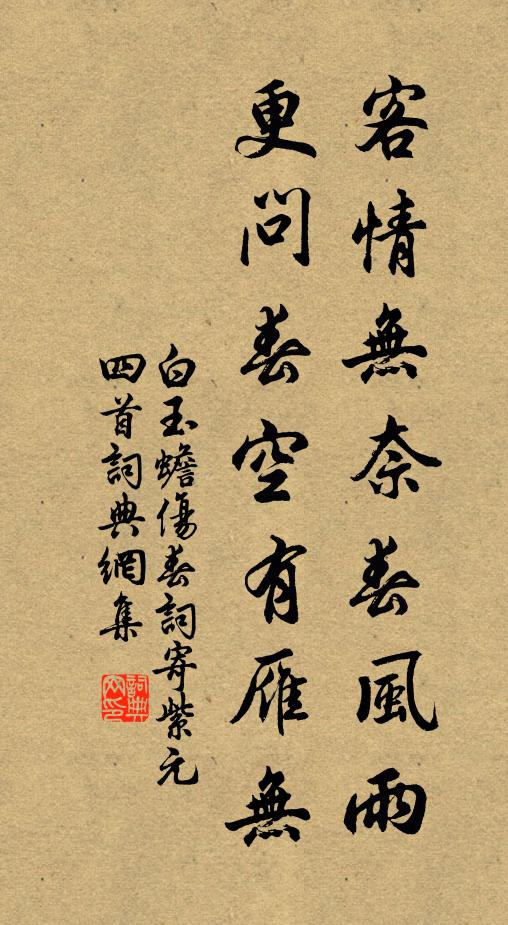 客情無奈春風雨
更問春空有雁無
白玉蟾傷春詞寄紫元
四首詞典網集
詞典網印